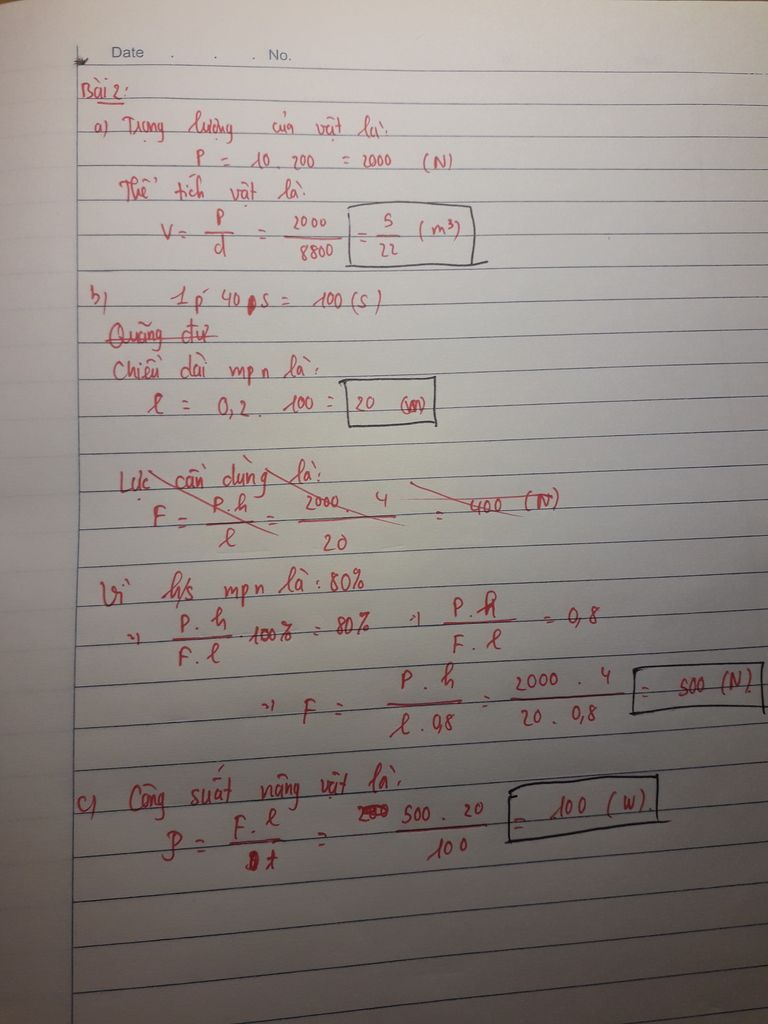 Date . . . No.
Bài 2:
a) Trọng lượng của vật là:
P = 10 . 200 = 2000 (N)
Thể tích vật là:
V = P/d = 2000/8800 = 5/22 (m³)
b) 1 p 40 s = 100 (s)
Quãng đư
Chiều dài mpn là:
l = 0,2 . 100 = 20 (m)
Lực cần dùng là:
F = P.h/l = 2000 . 4/20 = 400 (N)
Vì h/s mpn là : 80%
=> P.h/F.l . 100% = 80% => P.h/F.l = 0,8
=> F = P.h/l.0,8 = 2000 . 4/20 . 0,8 = 500 (N)
c) Công suất nâng vật là:
P = F.l/t = 500 . 20/100 = 100 (W).